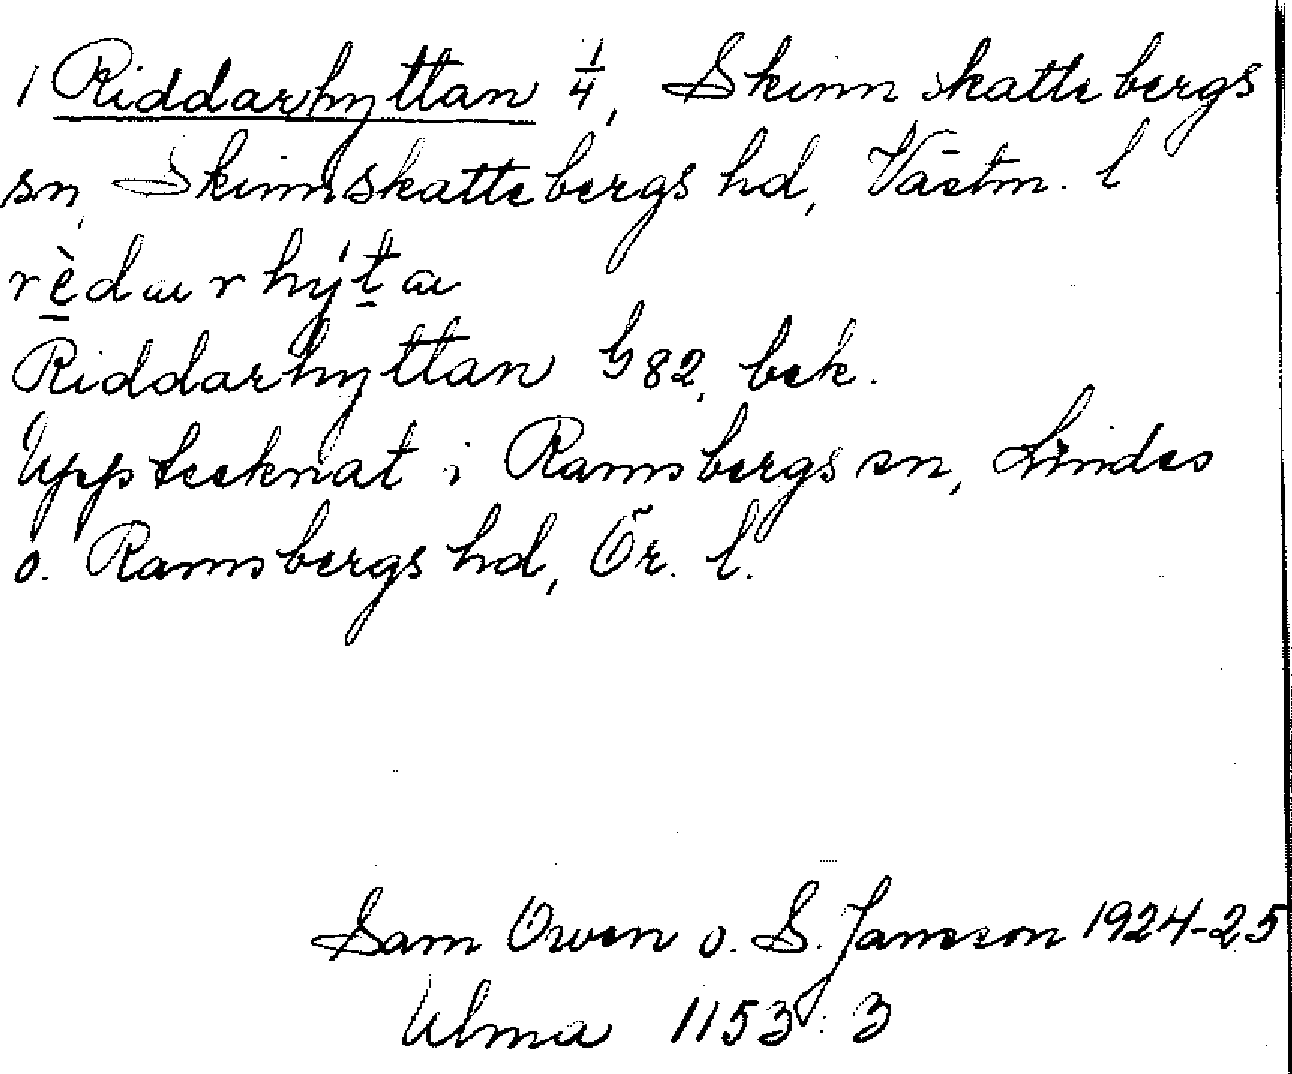 1 Riddarhyttan 1/4, Skinnskattebergs
sn, Skinnskattebergs hd, Västm. l
rèdarhy̍ta
Riddarhyttan G 82, bek.
Upptecknat i Ramsbergs sn, Lindes
o. Ramsbergs hd, Ör. l.
Sam Owen o. S. Janson 1924-25
Ulma 1153 : 3